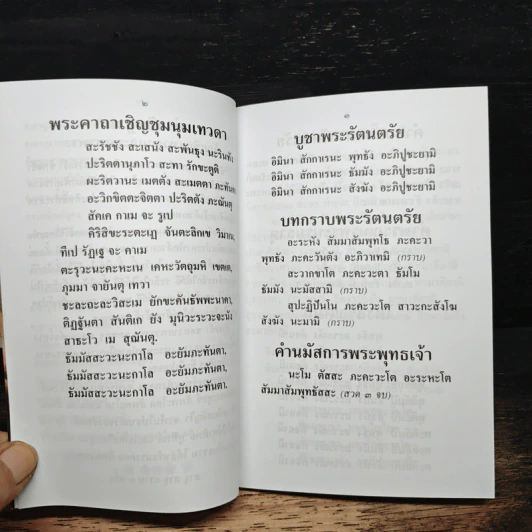 ๒
พระคาถาเชิญชุมนุมเทวดา
สะรัชชัง สะเสนัง สะพันธุง นะรินทัง
ปะริตตานุภาโว สะทา รักขะตูติ
ผะริตวานะ เมตตัง สะเมตตา ภะทันตา
อะวิกขิตตะจิตตา ปะริตตัง ภะณันตุ
สัคเค กาเม จะ รูเป
คิริสิขะระตะเฏ จันตะลิกเข วิมาเน
ทีเป รัฏเฐ จะ คาเม
ตะรุวะนะคะหะเน เคหะวัตถุมหิ เขตเต,
ภุมมา จายันตุ เทวา
ชะละถะละวิสะเม ยักขะคันธัพพะนาคา,
ติฏฐันตา สันติเก ยัง มุนิวะระวะจะนัง
สาธะโว เม สุณันตุ.
ธัมมัสสะวะนะกาโล อะยัมภะทันตา,
ธัมมัสสะวะนะกาโล อะยัมภะทันตา,
ธัมมัสสะวะนะกาโล อะยัมภะทันตา.
๓
บูชาพระรัตนตรัย
อิมินา สักกาเรนะ พุทธัง อะภิปูชะยามิ
อิมินา สักกาเรนะ ธัมมัง อะภิปูชะยามิ
อิมินา สักกาเรนะ สังฆัง อะภิปูชะยามิ
บทกราบพระรัตนตรัย
อะระหัง สัมมาสัมพุทโธ ภะคะวา
พุทธัง ภะคะวันตัง อะภิวาเทมิ (กราบ)
สะวากขาโต ภะคะวะตา ธัมโม
ธัมมัง นะมัสสามิ (กราบ)
สุปะฏิปันโน ภะคะวะโต สาวะกะสังโฆ
สังฆัง นะมามิ (กราบ)
คำนมัสการพระพุทธเจ้า
นะโม ตัสสะ ภะคะวะโต อะระหะโต
สัมมาสัมพุทธัสสะ (สวด ๓ จบ)